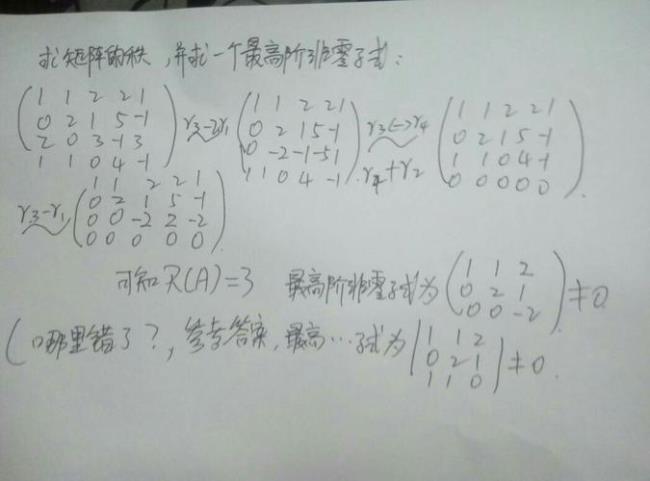 求矩阵的秩,并求一个最高阶非零子式:
( 1 1 2 2 1 ; 0 2 1 5 -1 ; 2 0 3 -1 3 ; 1 1 0 4 -1 ) r3-2r1 ( 1 1 2 2 1 ; 0 2 1 5 -1 ; 0 -2 -1 -5 1 ; 1 1 0 4 -1 ) r3↔r4 r4+r2 ( 1 1 2 2 1 ; 0 2 1 5 -1 ; 1 1 0 4 -1 ; 0 0 0 0 0 )
r3-r1 ( 1 1 2 2 1 ; 0 2 1 5 -1 ; 0 0 -2 2 -2 ; 0 0 0 0 0 )
可知R(A)=3 最高阶非零子式为 ( 1 1 2 ; 0 2 1 ; 0 0 -2 ) ≠0
(哪里错了?,参考答案,最高…子式为 | 1 1 2 ; 0 2 1 ; 1 1 0 | ≠0.